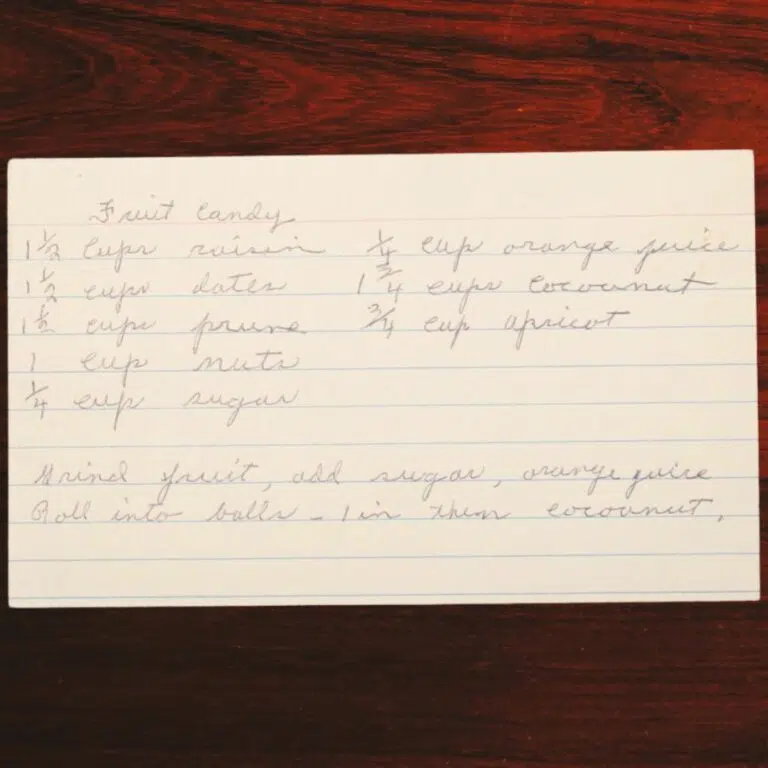 Fruit Candy
1 1/2 Cups raisin 1/4 cup orange juice
1 1/2 cups dates 1 3/4 cups cocoanut
1 1/2 cups prune 3/4 cup apricot
1 cup nuts
1/4 cup sugar
Grind fruit, add sugar, orange juice
Roll into balls - 1 in then cocoanut,